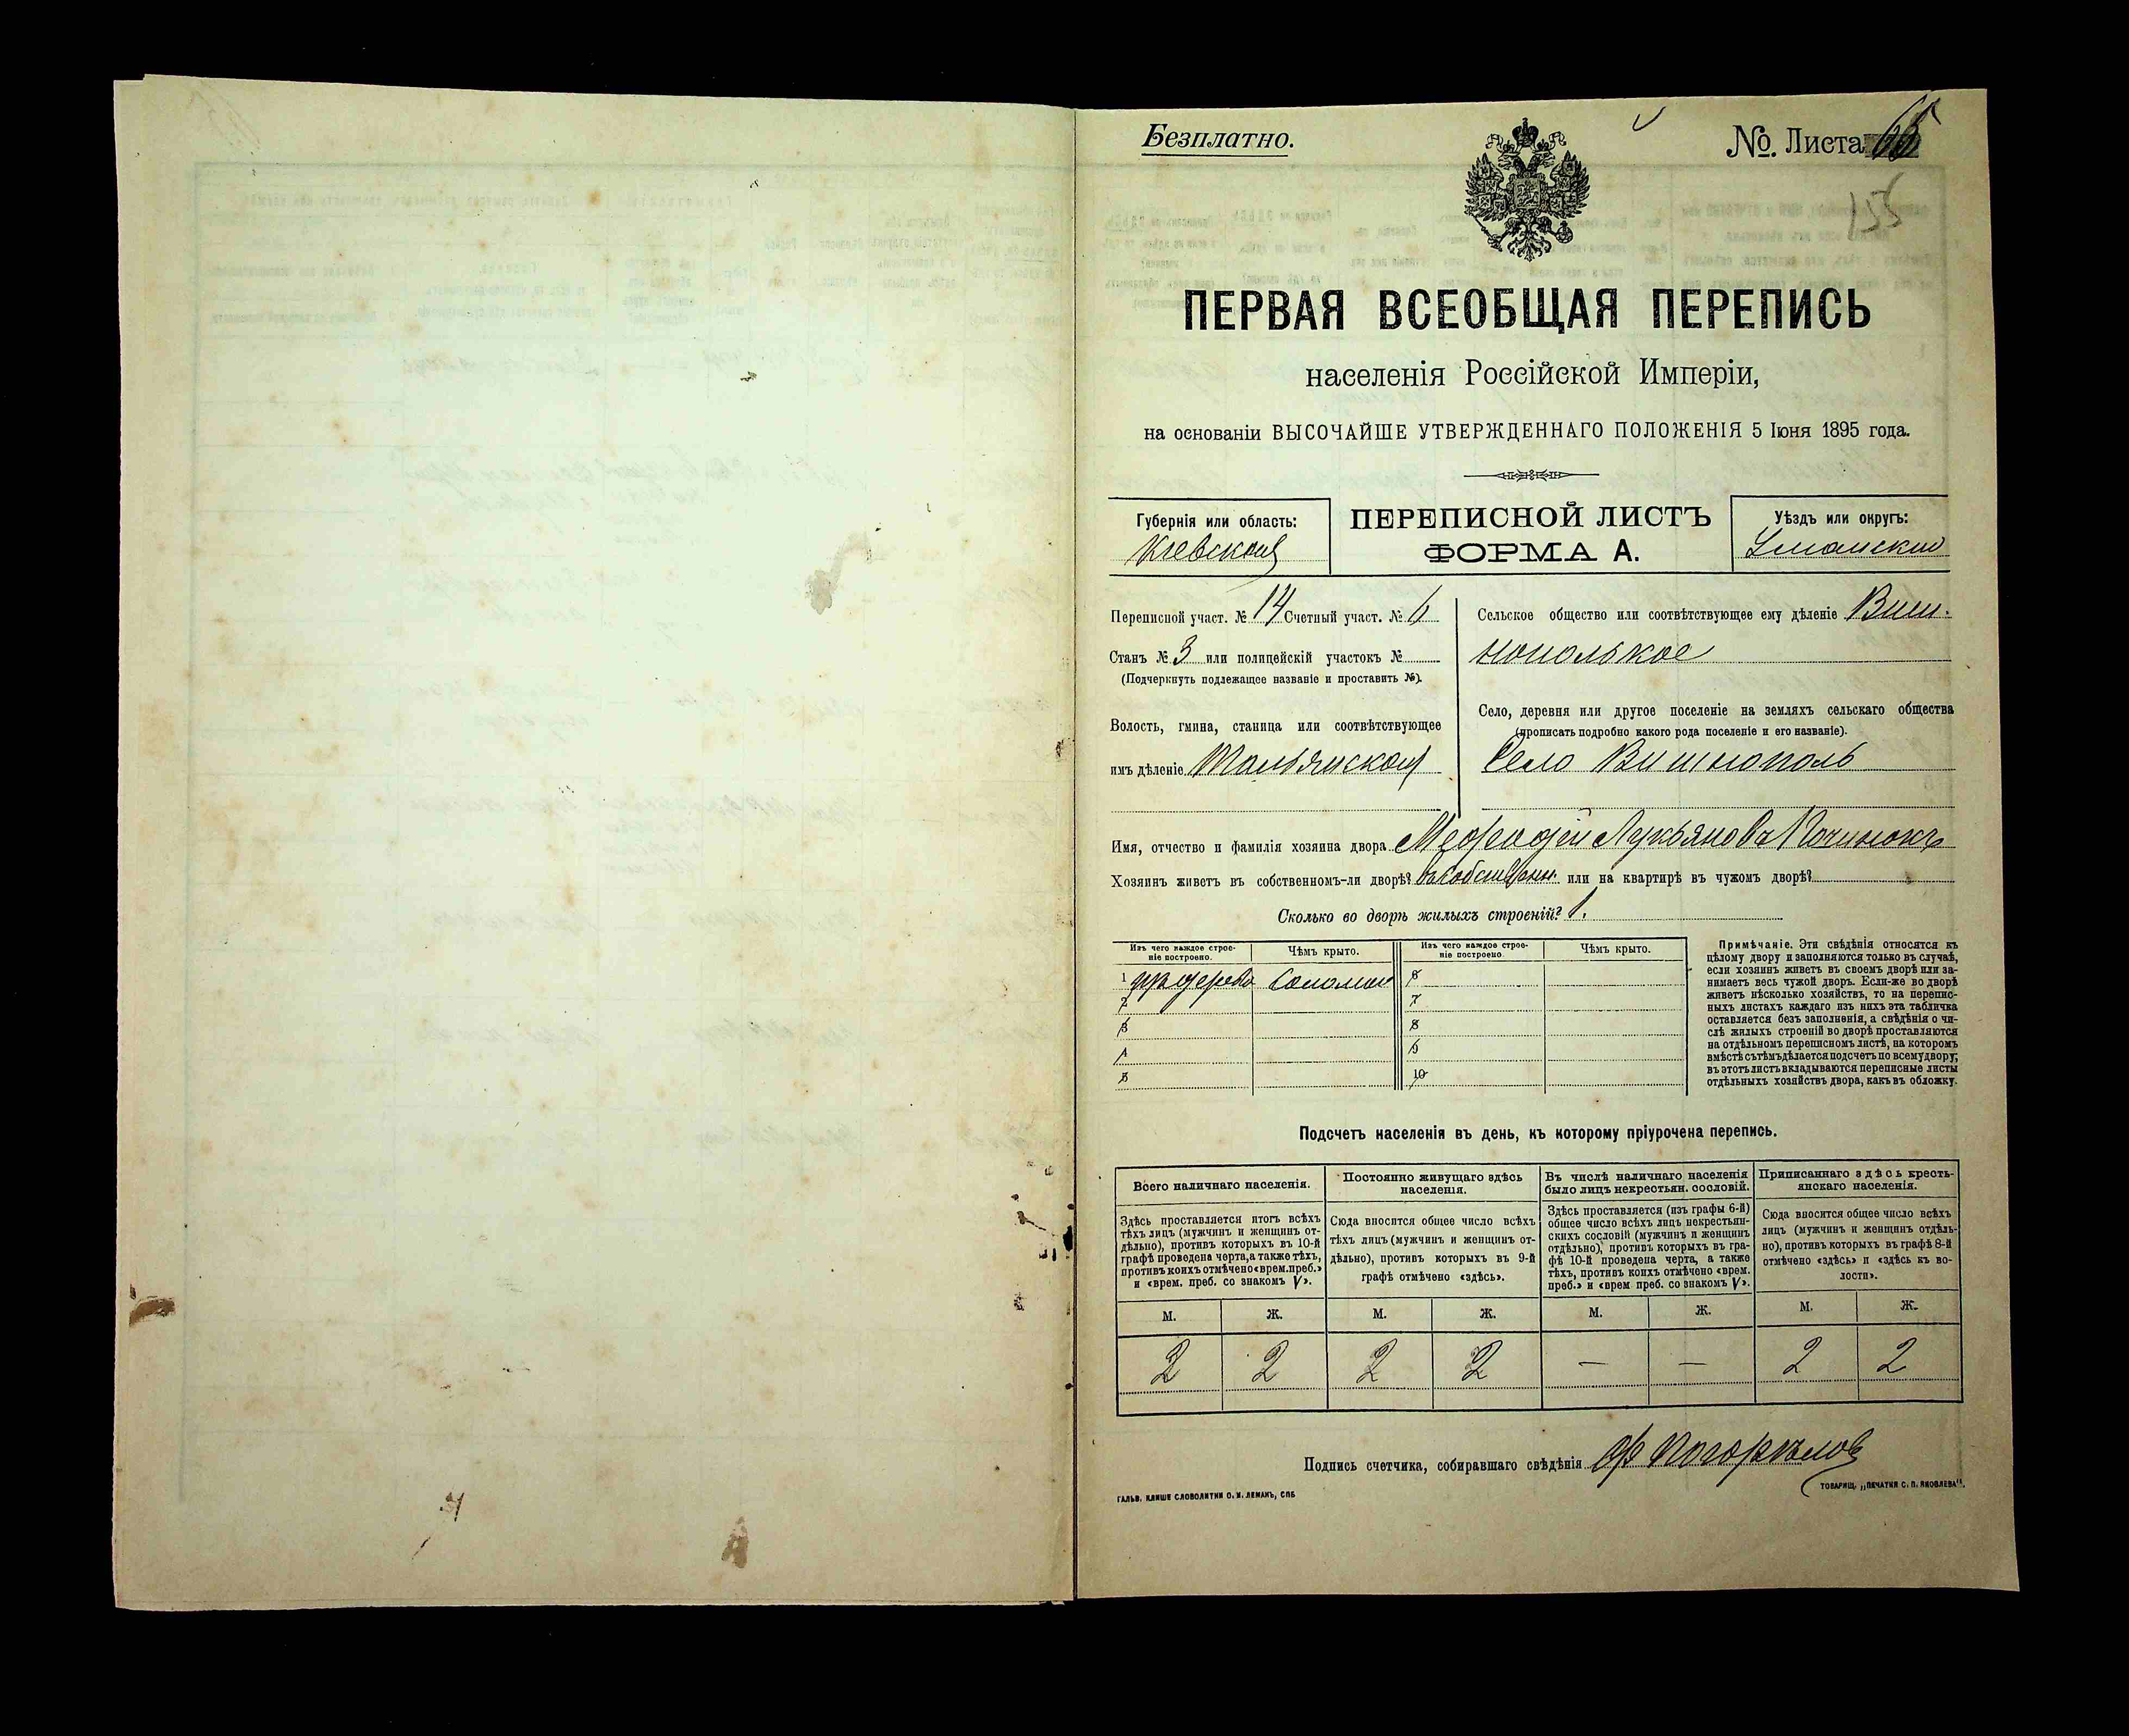 Безплатно.
№. Листа 65
155
ПЕРВАЯ ВСЕОБЩАЯ ПЕРЕПИСЬ
населенія Россійской Имперіи,
на основаніи ВЫСОЧАЙШЕ УТВЕРЖДЕННАГО ПОЛОЖЕНІЯ 5 Іюня 1895 года.
Губернія или область:
Кіевская
ПЕРЕПИСНОЙ ЛИСТЪ
ФОРМА А.
Уѣздъ или округъ:
Уманскій
Переписной участ. № 14 Счетный участ. № 6
Станъ № 3 или полицейскій участокъ №
(Подчеркнуть подлежащее названіе и проставить №).
Волость, гмина, станица или соотвѣтствующее
имъ дѣленіе Тальянская
Сельское общество или соотвѣтствующее ему дѣленіе Виш-
нопольское
Село, деревня или другое поселеніе на земляхъ сельскаго общества
(прописать подробно какого рода поселеніе и его названіе).
Село Вишнополь
Имя, отчество и фамилія хозяина двора Мефодій Лукьяновъ Починокъ
Хозяинъ живетъ въ собственномъ-ли дворѣ? въ собственн. или на квартирѣ въ чужомъ дворѣ?
Сколько во дворѣ жилыхъ строеній? 1.
Изъ чего каждое строе-
ніе построено.
Чѣмъ крыто.
Изъ чего каждое строе-
ніе построено
Чѣмъ крыто.
1 изъ дерева Соломой 6
2 7
3 8
4 9
5 10
Примѣчаніе. Эти свѣдѣнія относятся къ
цѣлому двору и заполняются только въ случаѣ,
если хозяинъ живетъ въ своемъ дворѣ или за-
нимаетъ весь чужой дворъ. Если-же во дворѣ
живетъ нѣсколько хозяйствъ, то на перепис-
ныхъ листахъ каждаго изъ нихъ эта табличка
оставляется безъ заполненія, а свѣдѣнія о чи-
слѣ жилыхъ строеній во дворѣ проставляются
на отдѣльномъ переписномъ листѣ, на которомъ
вмѣстѣ съ тѣмъ дѣлается подсчетъ по всему двору;
въ этотъ листъ вкладываются переписные листы
отдѣльныхъ хозяйствъ двора, какъ въ обложку.
Подсчетъ населенія въ день, къ которому пріурочена перепись.
Всего наличнаго населенія.
Здѣсь проставляется итогъ всѣхъ
тѣхъ лицъ (мужчинъ и женщинъ от-
дѣльно), противъ которыхъ въ 10-й
графѣ проведена черта, а также тѣхъ,
противъ коихъ отмѣчено «врем. преб.»
и «врем. преб. со знакомъ V».
Постоянно живущаго здѣсь
населенія.
Сюда вносится общее число всѣхъ
тѣхъ лицъ (мужчинъ и женщинъ от-
дѣльно), противъ которыхъ въ 9-й
графѣ отмѣчено «здѣсь».
Въ числѣ наличнаго населенія
было лицъ некрестьян. сословій.
Здѣсь проставляется (изъ графы 6-й)
общее число всѣхъ лицъ некрестьян-
скихъ сословій (мужчинъ и женщинъ
отдѣльно), противъ которыхъ въ гра-
фѣ 10-й проведена черта, а также
тѣхъ, противъ коихъ отмѣчено «врем.
преб.» и «врем преб. со знакомъ V».
Приписаннаго здѣсь кресть-
янскаго населенія.
Сюда вносится общее число всѣхъ
лицъ (мужчинъ и женщинъ отдѣль-
но), противъ которыхъ въ графѣ 8-й
отмѣчено «здѣсь» и «здѣсь къ во-
лости».
М. Ж. М. Ж. М. Ж. М. Ж.
2 2 2 2 — — 2 2
Подпись счетчика, собиравшаго свѣдѣнія Ф Погорѣлов
ГАЛЬВ. КЛИШЕ СЛОВОЛИТНИ О. И. ЛЕМАНЪ, СПБ
ТОВАРИЩ. „ПЕЧАТНЯ С. П. ЯКОВЛЕВА".